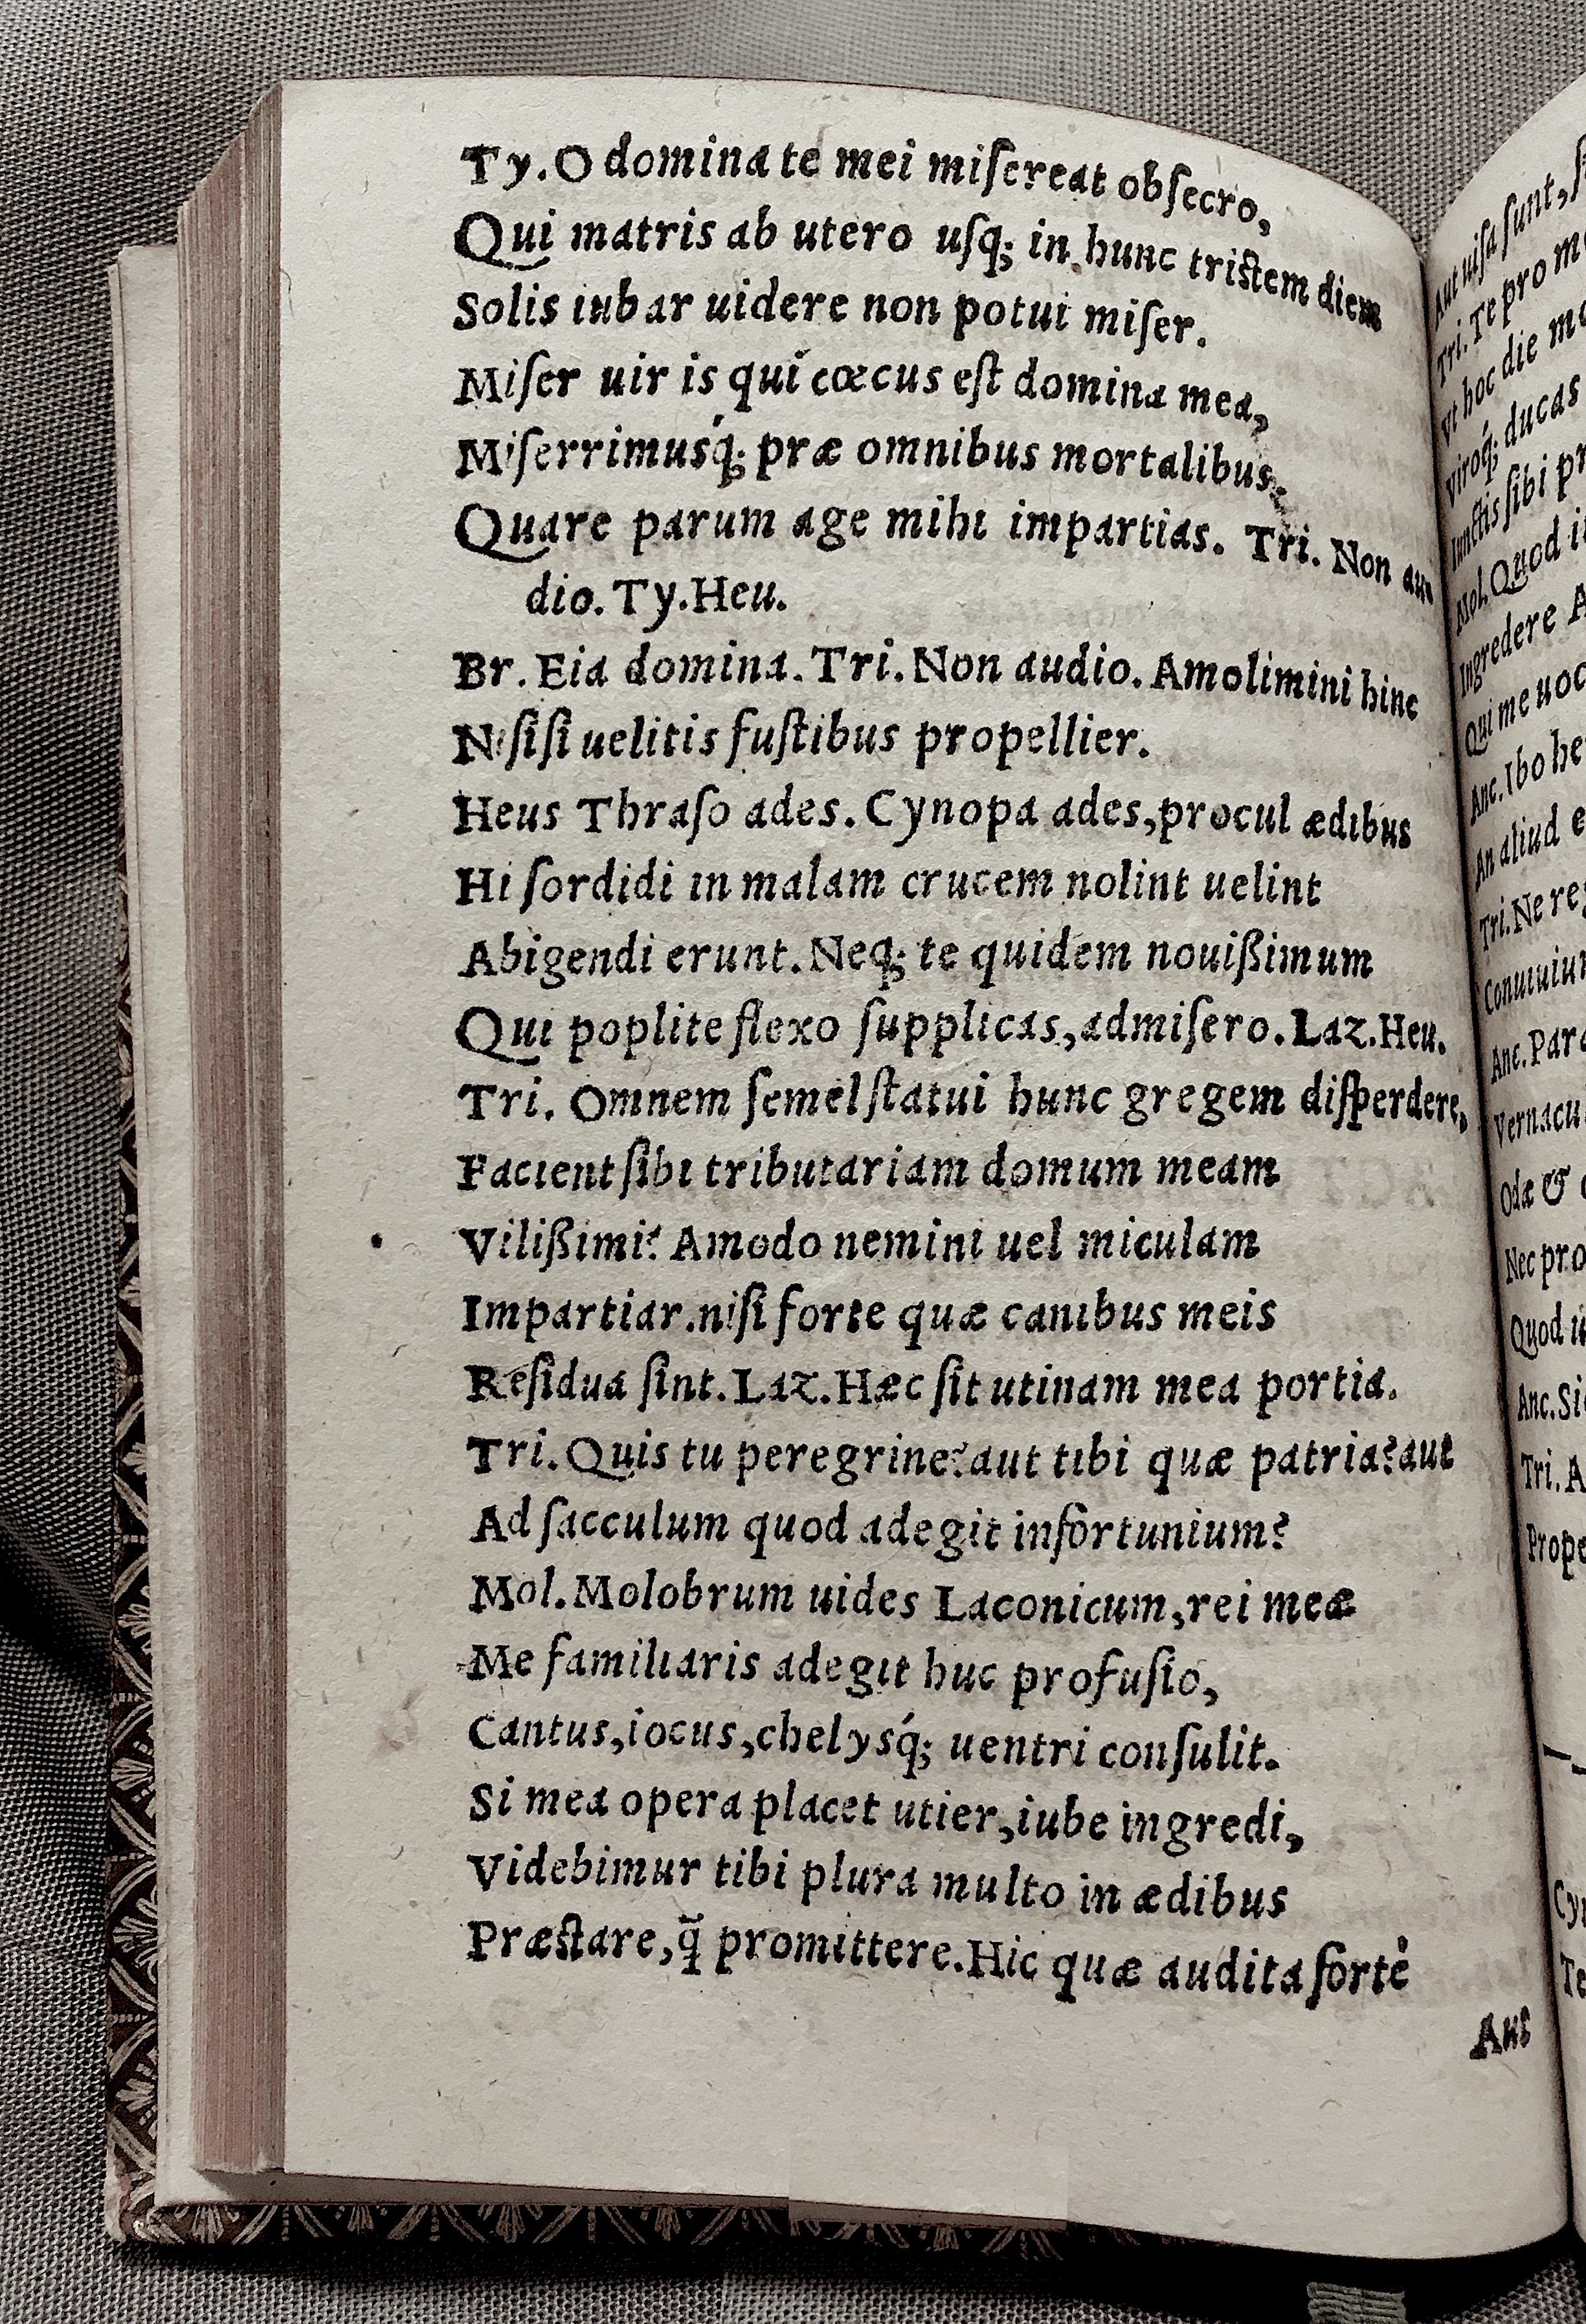 Ty. O domina te mei miſereat obſecro,
Qui matris ab utero uſq; in hunc triſtem diem
Solis iubar uidere non potui miſer.
Miſer uir is qui cœcus eſt domina mea,
Miſerrimusq́; præ omnibus mortalibus.
Quare parum age mihi impartias. Tri. Non au
dio. Ty. Heu.
Br. Eia domina. Tri. Non audio. Amolimini hinc
Niſi ſi uelitis fuſtibus propellier.
Heus Thraſo ades. Cynopa ades, procul ædibus
Hi ſordidi in malam crucem nolint uelint
Abigendi erunt. Neq; te quidem nouißimum
Qui poplite flexo ſupplicas, admiſero. Laz. Heu.
Tri. Omnem ſemel ſtatui hunc gregem diſperdere,
Facient ſibi tributariam domum meam
Vilißimi? Amodo nemini uel miculam
Impartiar. niſi forte quæ canibus meis
Reſidua ſint. Laz. Hæc ſit utinam mea portia.
Tri. Quis tu peregrine? aut tibi quæ patria? aut
Ad ſacculum quod adegit infortunium?
Mol. Molobrum uides Laconicum, rei meæ
Me familiaris adegit huc profuſio,
Cantus, iocus, chelysq́; uentri conſulit.
Si mea opera placet utier, iube ingredi,
Videbimur tibi plura multo in ædibus
Præſtare, q̃ promittere. Hic quæ audita forte
Aut
Aut uiſa ſunt,
Tri. Te pro
Vt hoc die
Viroq́; ducas
Iunctis ſibi
Mol. Quod
Ingredere
Qui me
Anc. Ibo
An aliud
Tri. Ne
Anc.
Odæ &
Nec
Quod
Anc.
Tri.